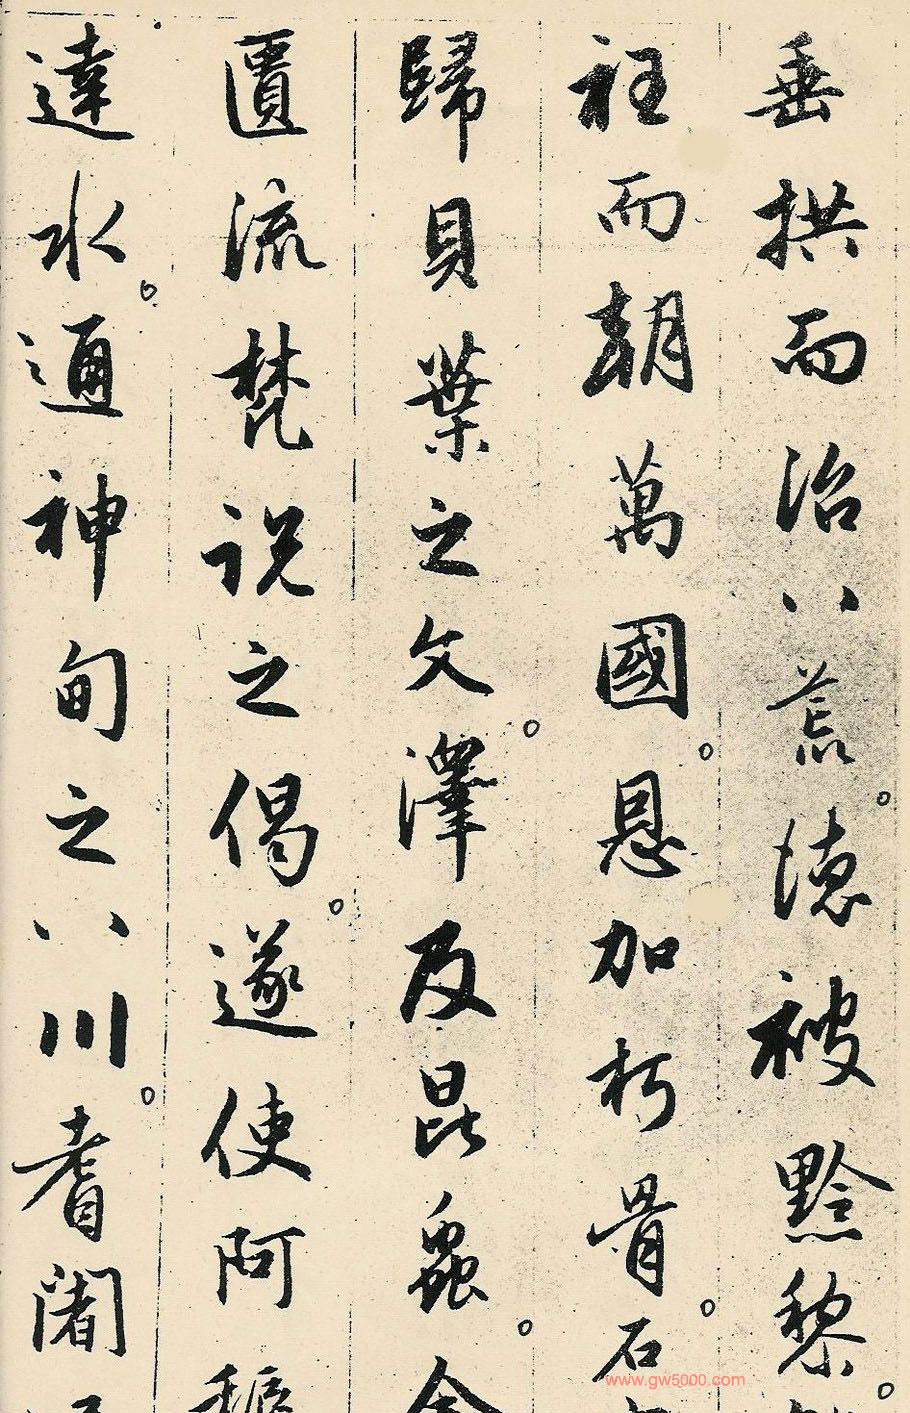 垂拱而治八荒。德被黔黎。
衽而朝萬國。恩加朽骨。石
歸貝葉之文。澤及昆蟲。金
匱流梵說之偈。遂使阿耨
達水。通神甸之八川。耆闍
www.gw5000.com